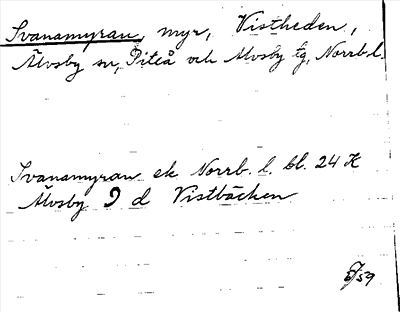 Svanamyran, myr, Vistheden,
Älvsby sn, Piteå och Älvsby tg, Norrb.l.
Svanamyran ek Norrb. l. bl. 24 K
Älvsby 9 d Vistbäcken
/59